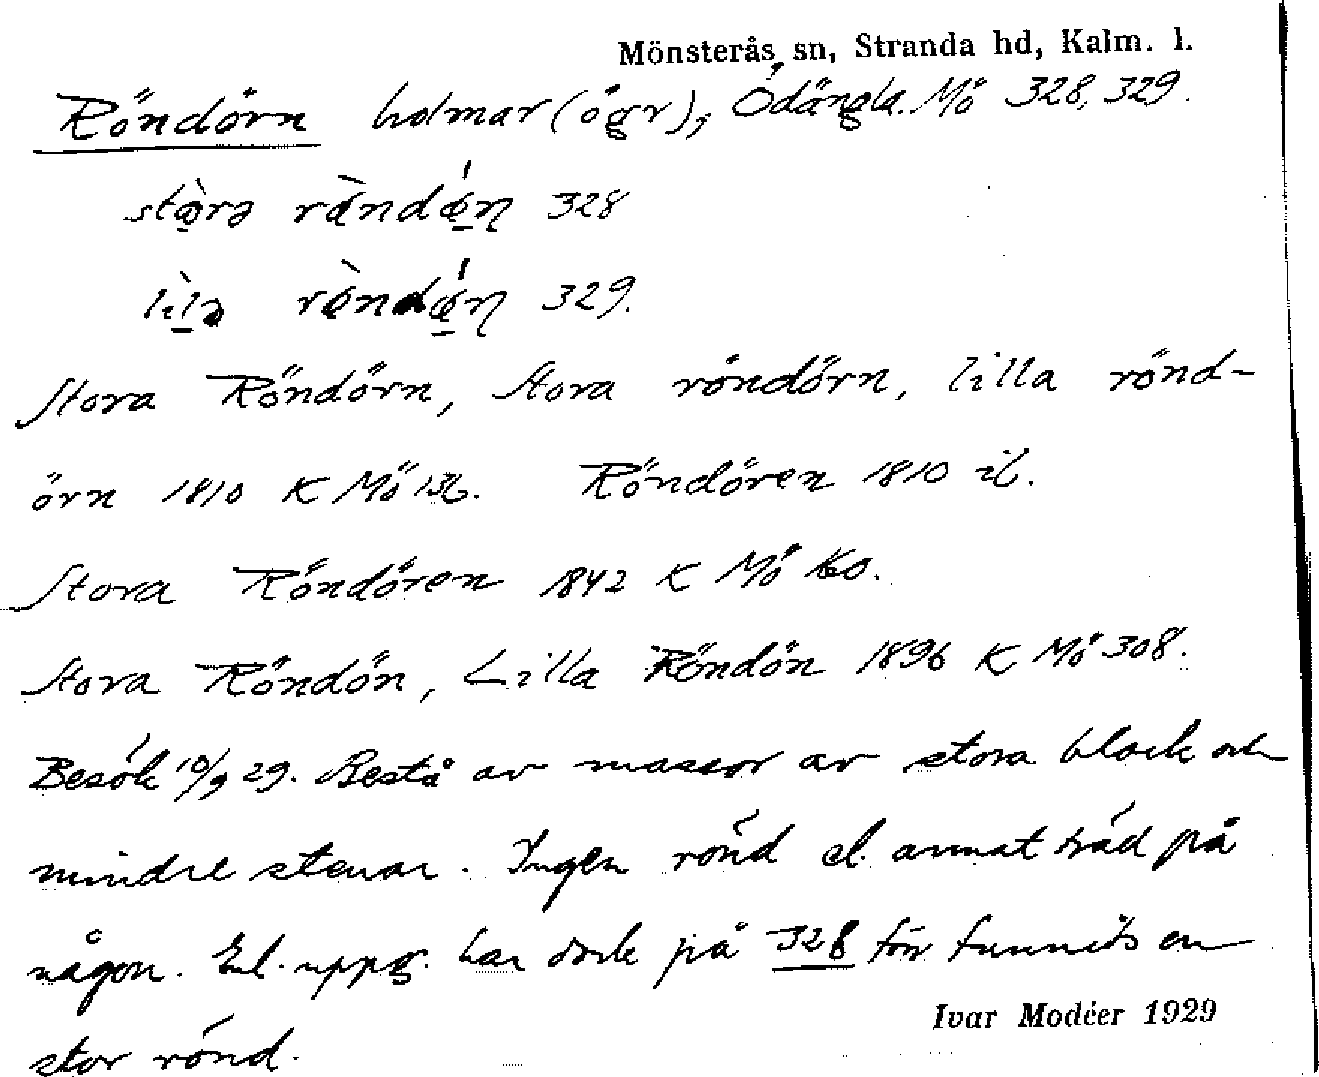 Mönsterås sn, Stranda hd, Kalm. l.
Röndörn holmar (ögr), Ödängla. Mö 328, 329.
328
329.
Stora Röndörn, Stora röndörn, lilla rönd-
örn 1810 K Mö 136. Röndören 1810 ib.
Stora Röndören 1842 K Mö
Stora Röndön, Lilla Röndön 1896 K Mö 308.
Besök 10/9 29. Bestå av massor av stora block och
mindre stenar. Ingen rönd el. annat träd på
någon. Enl. uppg. har dock på 328 förr funnits en
stor rönd.
Ivar Modéer 1929